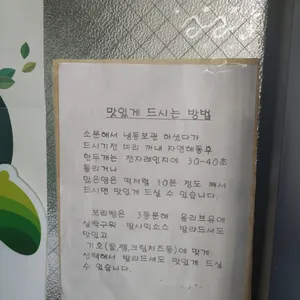 맛있게 드시는 방법
소분해서 냉동보관 하셨다가
드시기전 미리 꺼내 자연해동후
한두개는 전자레인지에 30-40초
돌리거나
많은양은 떡처럼 10분 정도 쪄서
드시면 맛있게 드실 수 있습니다.
보리빵은 3등분해 올리브유에
살짝구워 발사믹소스 발라드셔도
맛있고
기호(꿀,잼,크림치즈등)에 맞게
선택해서 발라드셔도 맛있게 드실
수 있습니다.